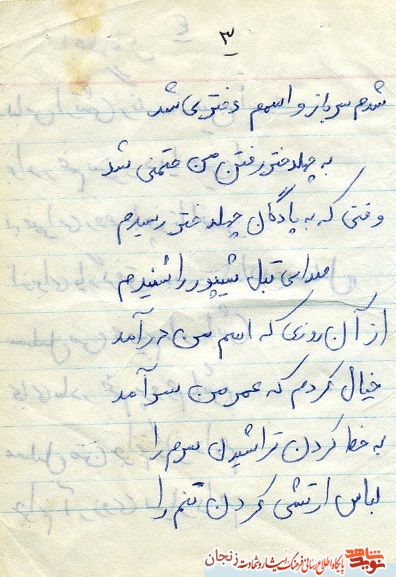 ۳
شدم سرباز و اسمم دفتری شد
به چهلدختر رفتن من حتمنی شد
وقتی که به پادگان چهلدختر رسیدم
صدای تبل شیپور را شنیدم
از آن روزی که اسم من در آمد
خیال کردم که عمر من سر آمد
به خطا کردن تراشیدن سرم را
لباس ارتشی کردن تنم را
نوید شاهد
پایگاه اطلاع رسانی فرهنگ ایثار و شهادت زنجان